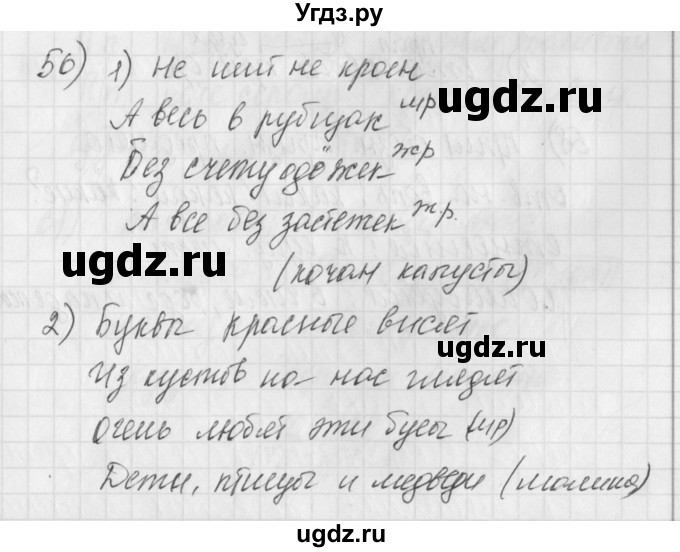 Угдз.ру
56) 1) Не шит не кроен
А весь в рубцах мр
Без счету одёжек жр
А все без застежек жр.
(кочан капусты)
2) Буквы красные висят
Из кустов на нас глядят
Очень любят эти бусы (мр)
Дети, птицы и медведи (малина)
ugdz.ru
ugdz.ru
ugdz.ru
ugdz.ru
ugdz.ru